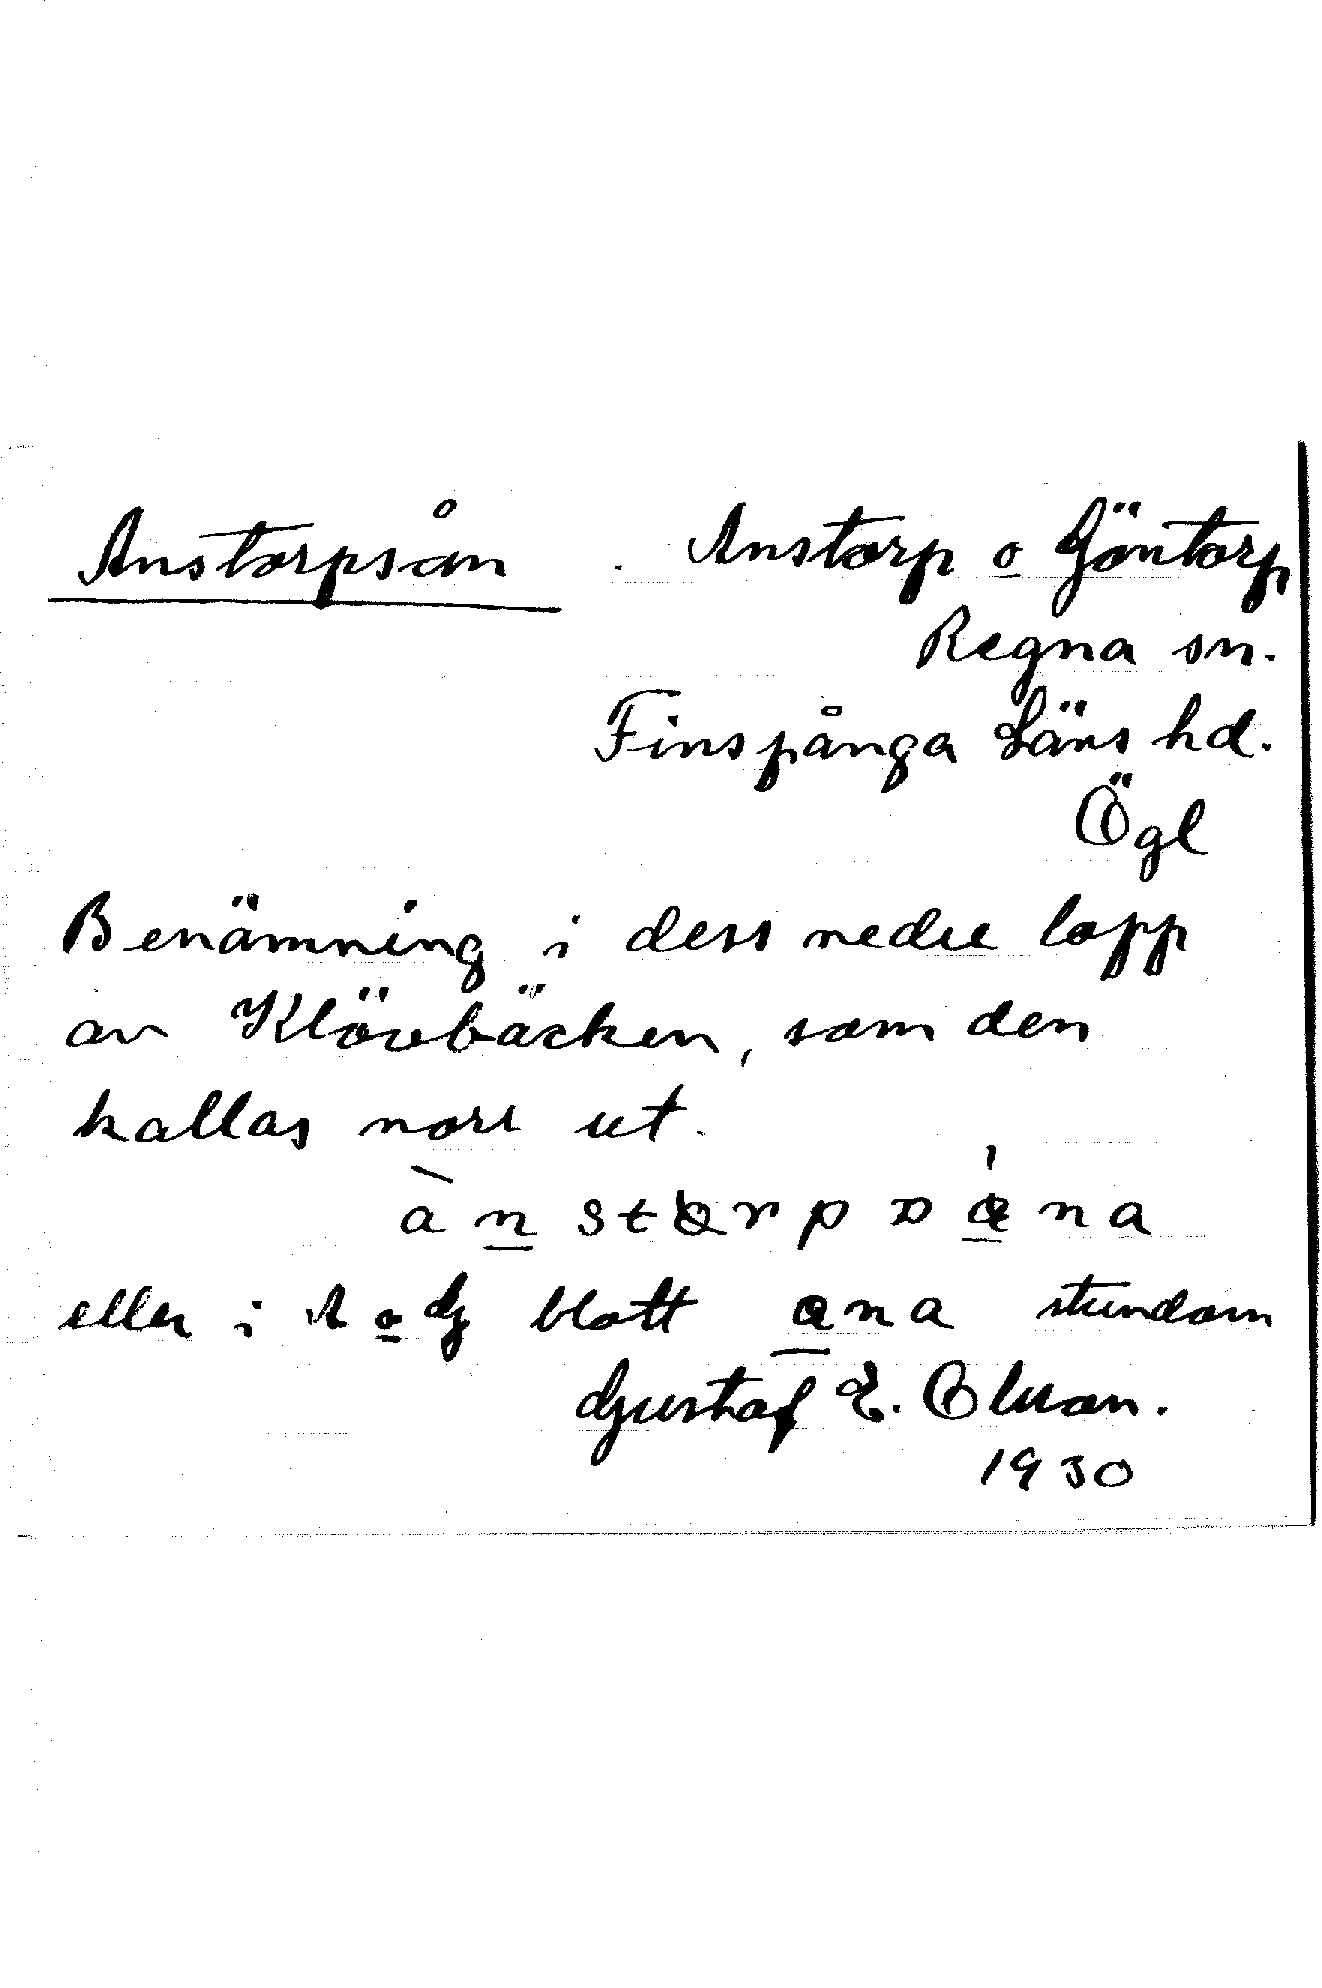 Anstorpsån . Anstorp o Göntorp
Regna sn.
Finspånga Läns hd.
Ögl
Benämning i dess nedre lopp
av Klövbäcken, som den
kallas norr ut.
eller i A o G blott ana stundom
Gustaf E. Olsson.
1930